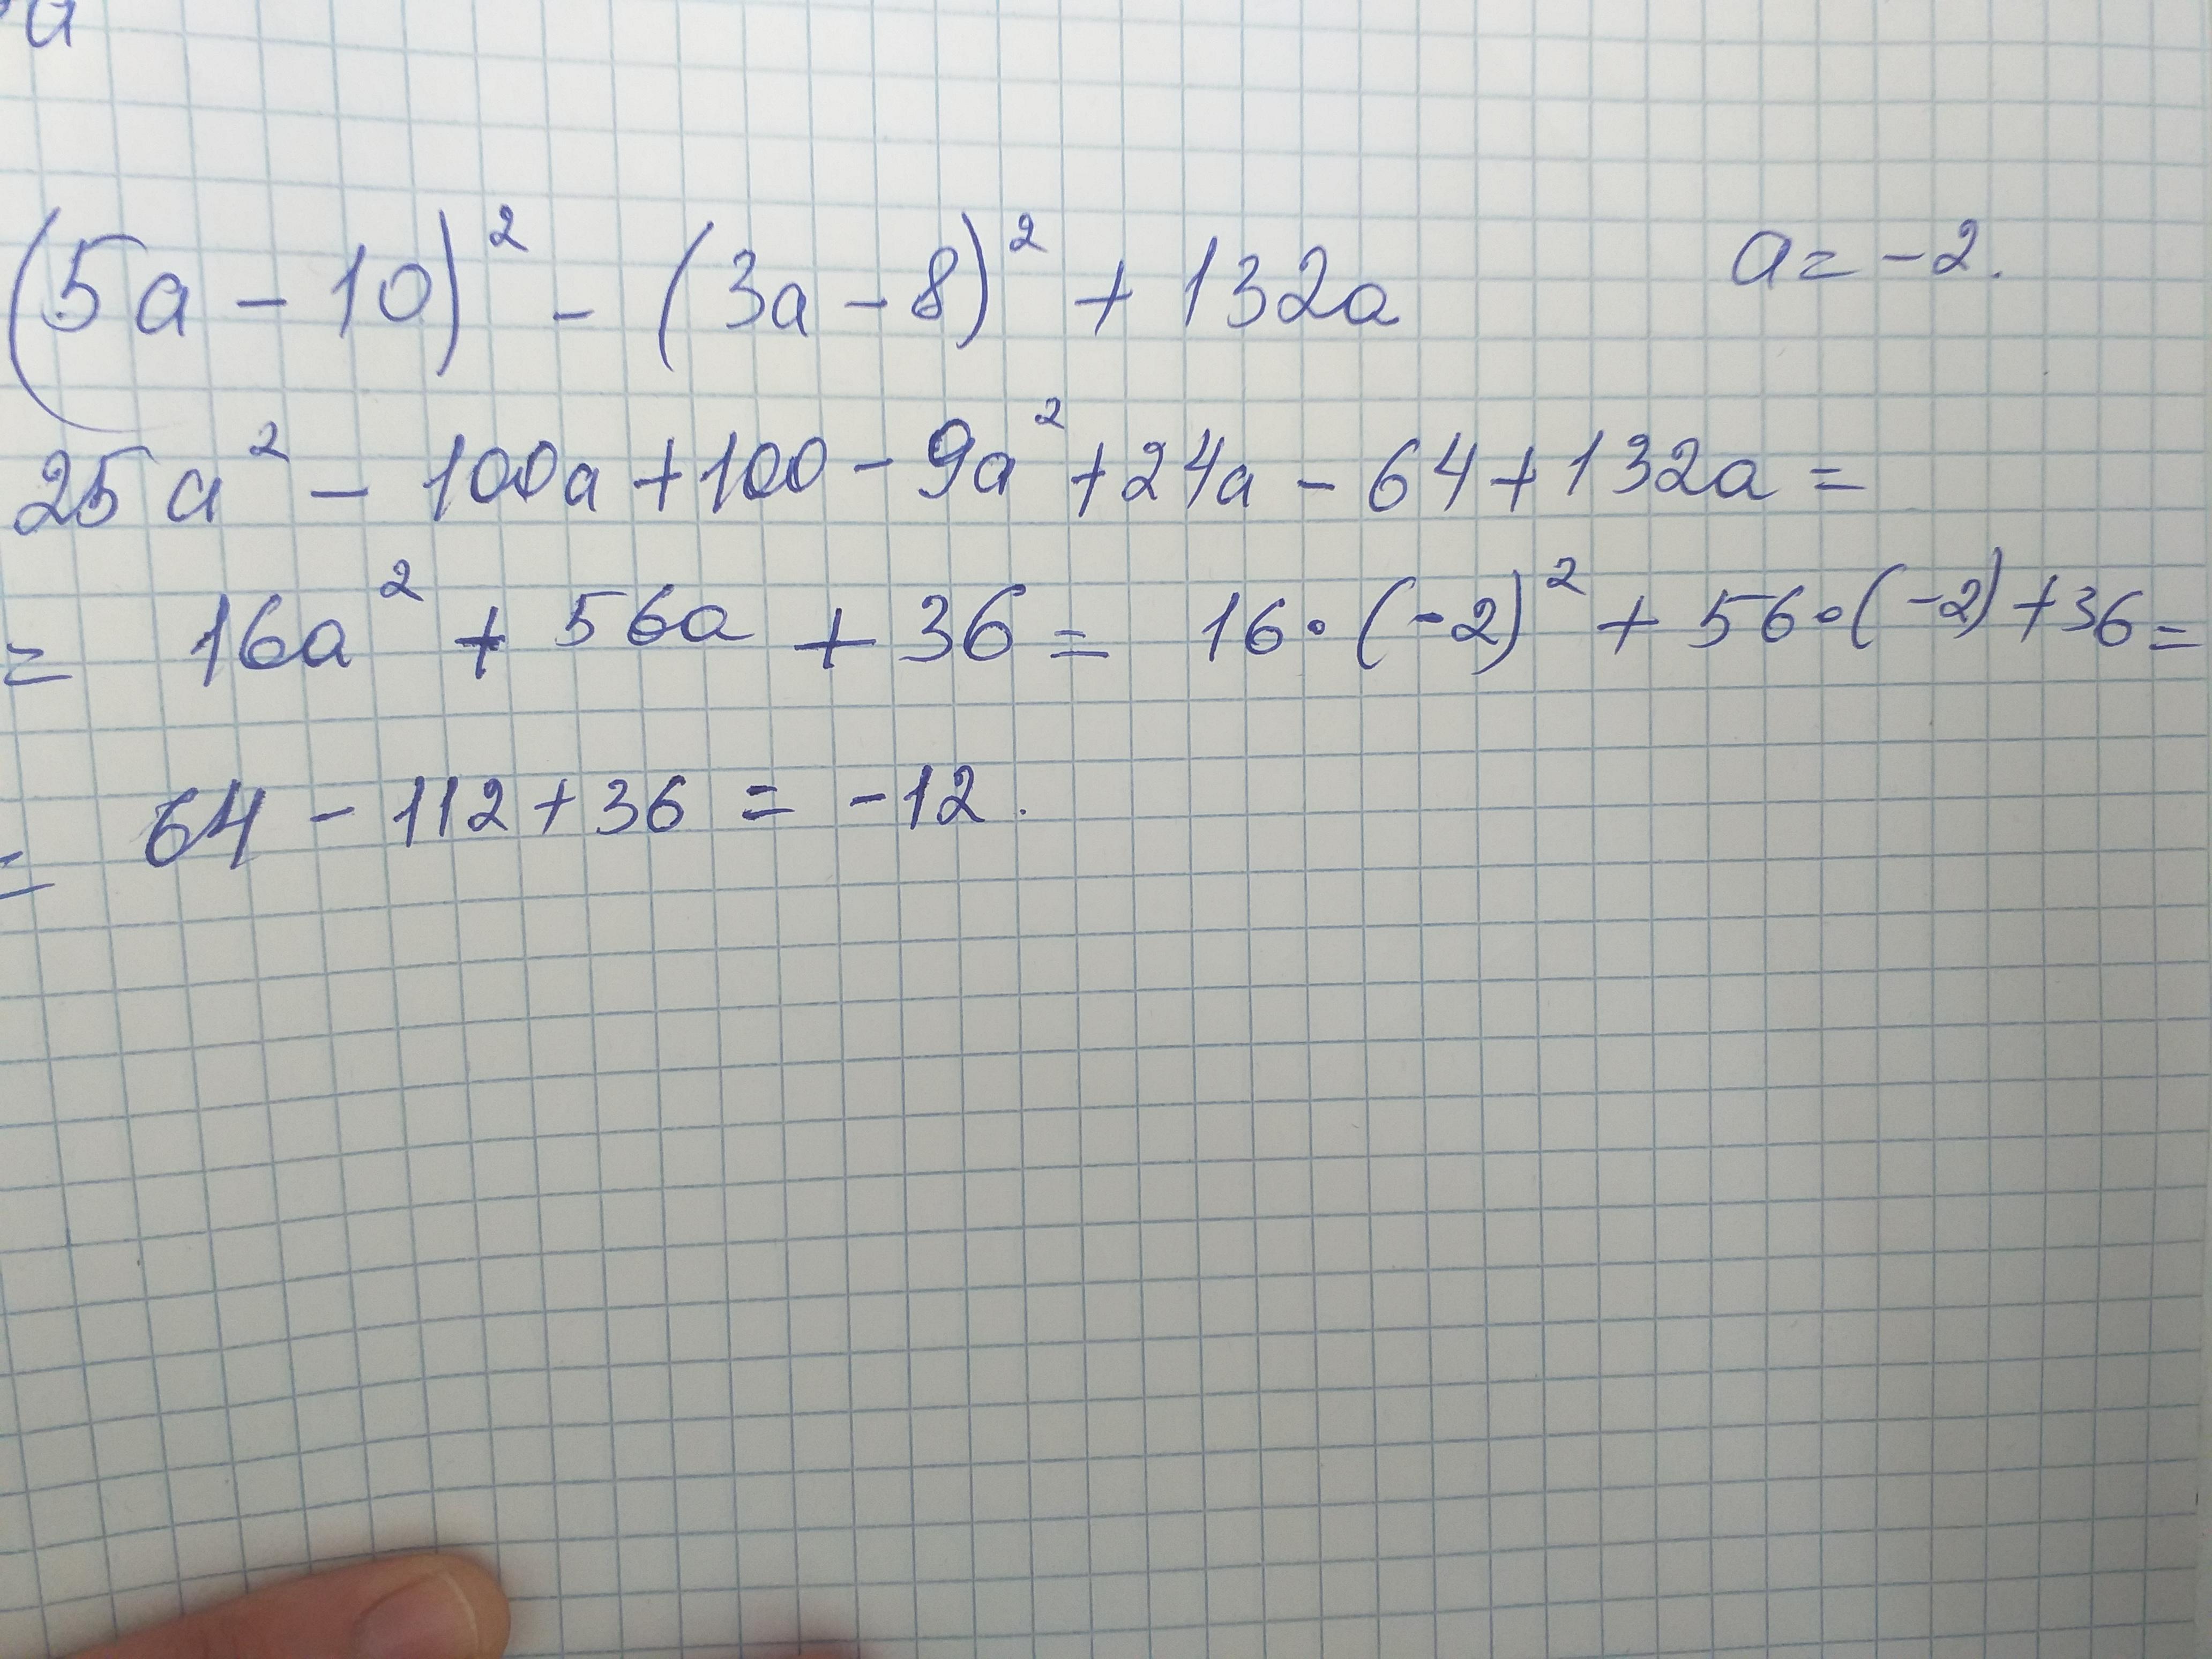 a
(5a - 10)² - (3a - 8)² + 132a a = -2.
25a² - 100a + 100 - 9a² + 24a - 64 + 132a =
= 16a² + 56a + 36 = 16·(-2)² + 56·(-2) + 36 =
= 64 - 112 + 36 = -12.